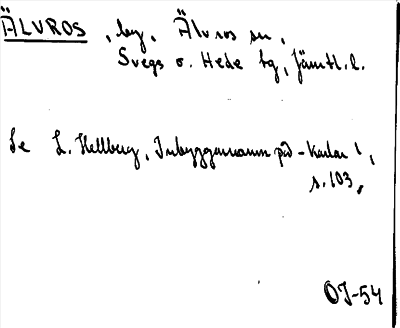 ÄLVROS, by, Älvros sn,
Svegs o. Hede tg, Jämtl. l.
Se L. Hellberg, Inbyggarnamn på -karlar,
s. 103.
OJ-54